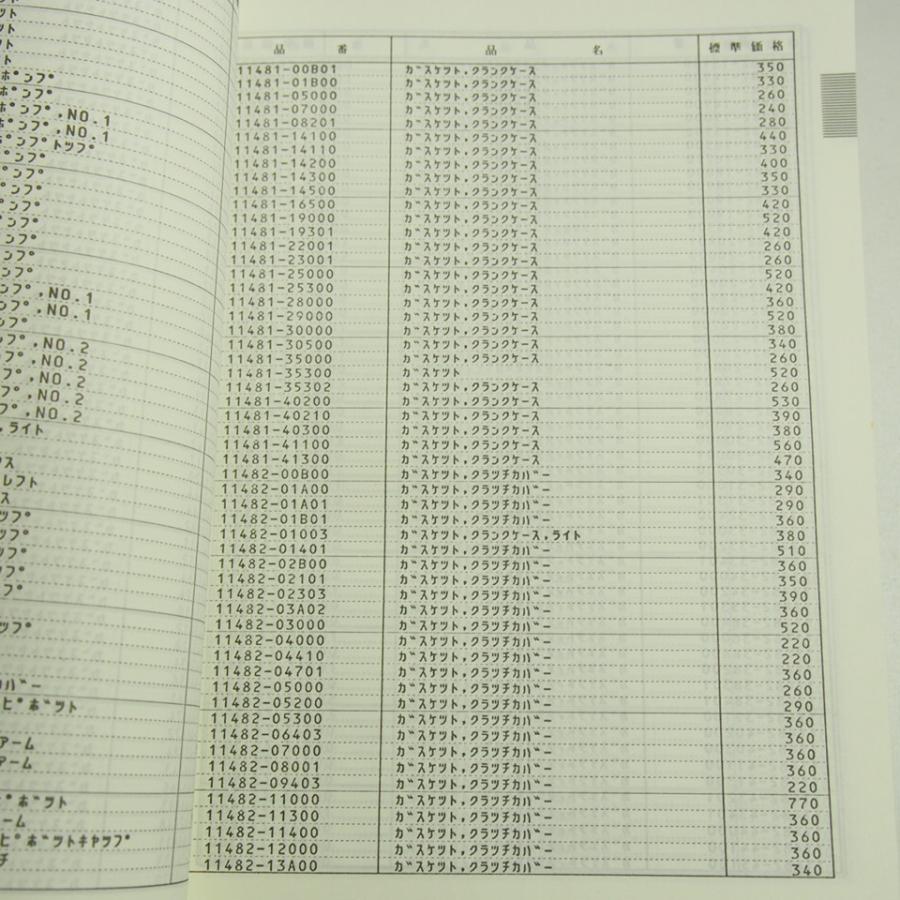 ット
ット
ット
ット
ット
ポンプ
ポンプ
ポンプ,NO.1
ポンプ,NO.1
ポンプトップ
ンプ
ンプ
ンプ
ンプ
ンプ
ンプ
ンプ
ンプ
ンプ,NO.1
ンプ,NO.1
ンプ
プ,NO.2
プ,NO.2
プ,NO.2
プ,NO.2
プ,NO.2
,ライト
レフト
ップ
ピボット
アーム
アーム
ボット
ーム
ピボットキャップ
品番 品名 標準価格
11481-00B01 ガスケツト,クランクケース 350
11481-01B00 ガスケツト,クランクケース 330
11481-05000 ガスケツト,クランクケース 260
11481-07000 ガスケツト,クランクケース 240
11481-08201 ガスケツト,クランクケース 280
11481-14100 ガスケツト,クランクケース 440
11481-14110 ガスケツト,クランクケース 330
11481-14200 ガスケツト,クランクケース 400
11481-14300 ガスケツト,クランクケース 350
11481-14500 ガスケツト,クランクケース 330
11481-16500 ガスケツト,クランクケース 420
11481-19000 ガスケツト,クランクケース 520
11481-19301 ガスケツト,クランクケース 420
11481-22001 ガスケツト,クランクケース 260
11481-23001 ガスケツト,クランクケース 260
11481-25000 ガスケツト,クランクケース 520
11481-25300 ガスケツト,クランクケース 420
11481-28000 ガスケツト,クランクケース 360
11481-29000 ガスケツト,クランクケース 520
11481-30000 ガスケツト,クランクケース 380
11481-30500 ガスケツト,クランクケース 340
11481-35000 ガスケツト,クランクケース 260
11481-35300 ガスケツト 520
11481-35302 ガスケツト,クランクケース 260
11481-40200 ガスケツト,クランクケース 530
11481-40210 ガスケツト,クランクケース 390
11481-40300 ガスケツト,クランクケース 380
11481-41100 ガスケツト,クランクケース 560
11481-41300 ガスケツト,クランクケース 470
11482-00B00 ガスケツト,クラツチカバー 340
11482-01A00 ガスケツト,クラツチカバー 290
11482-01A01 ガスケツト,クラツチカバー 290
11482-01B01 ガスケツト,クラツチカバー 360
11482-01003 ガスケツト,クランクケース,ライト 380
11482-01401 ガスケツト,クラツチカバー 510
11482-02B00 ガスケツト,クラツチカバー 360
11482-02101 ガスケツト,クラツチカバー 350
11482-02303 ガスケツト,クラツチカバー 390
11482-03A02 ガスケツト,クラツチカバー 360
11482-03000 ガスケツト,クラツチカバー 520
11482-04000 ガスケツト,クラツチカバー 220
11482-04410 ガスケツト,クラツチカバー 220
11482-04701 ガスケツト,クラツチカバー 360
11482-05000 ガスケツト,クラツチカバー 260
11482-05200 ガスケツト,クラツチカバー 290
11482-05300 ガスケツト,クラツチカバー 360
11482-06403 ガスケツト,クラツチカバー 360
11482-07000 ガスケツト,クラツチカバー 360
11482-08001 ガスケツト,クラツチカバー 360
11482-09403 ガスケツト,クラツチカバー 220
11482-11000 ガスケツト,クラツチカバー 770
11482-11300 ガスケツト,クラツチカバー 360
11482-11400 ガスケツト,クラツチカバー 360
11482-12000 ガスケツト,クラツチカバー 360
11482-13A00 ガスケツト,クラツチカバー 340